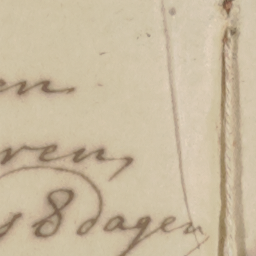 en
ren,
s 8 dagen